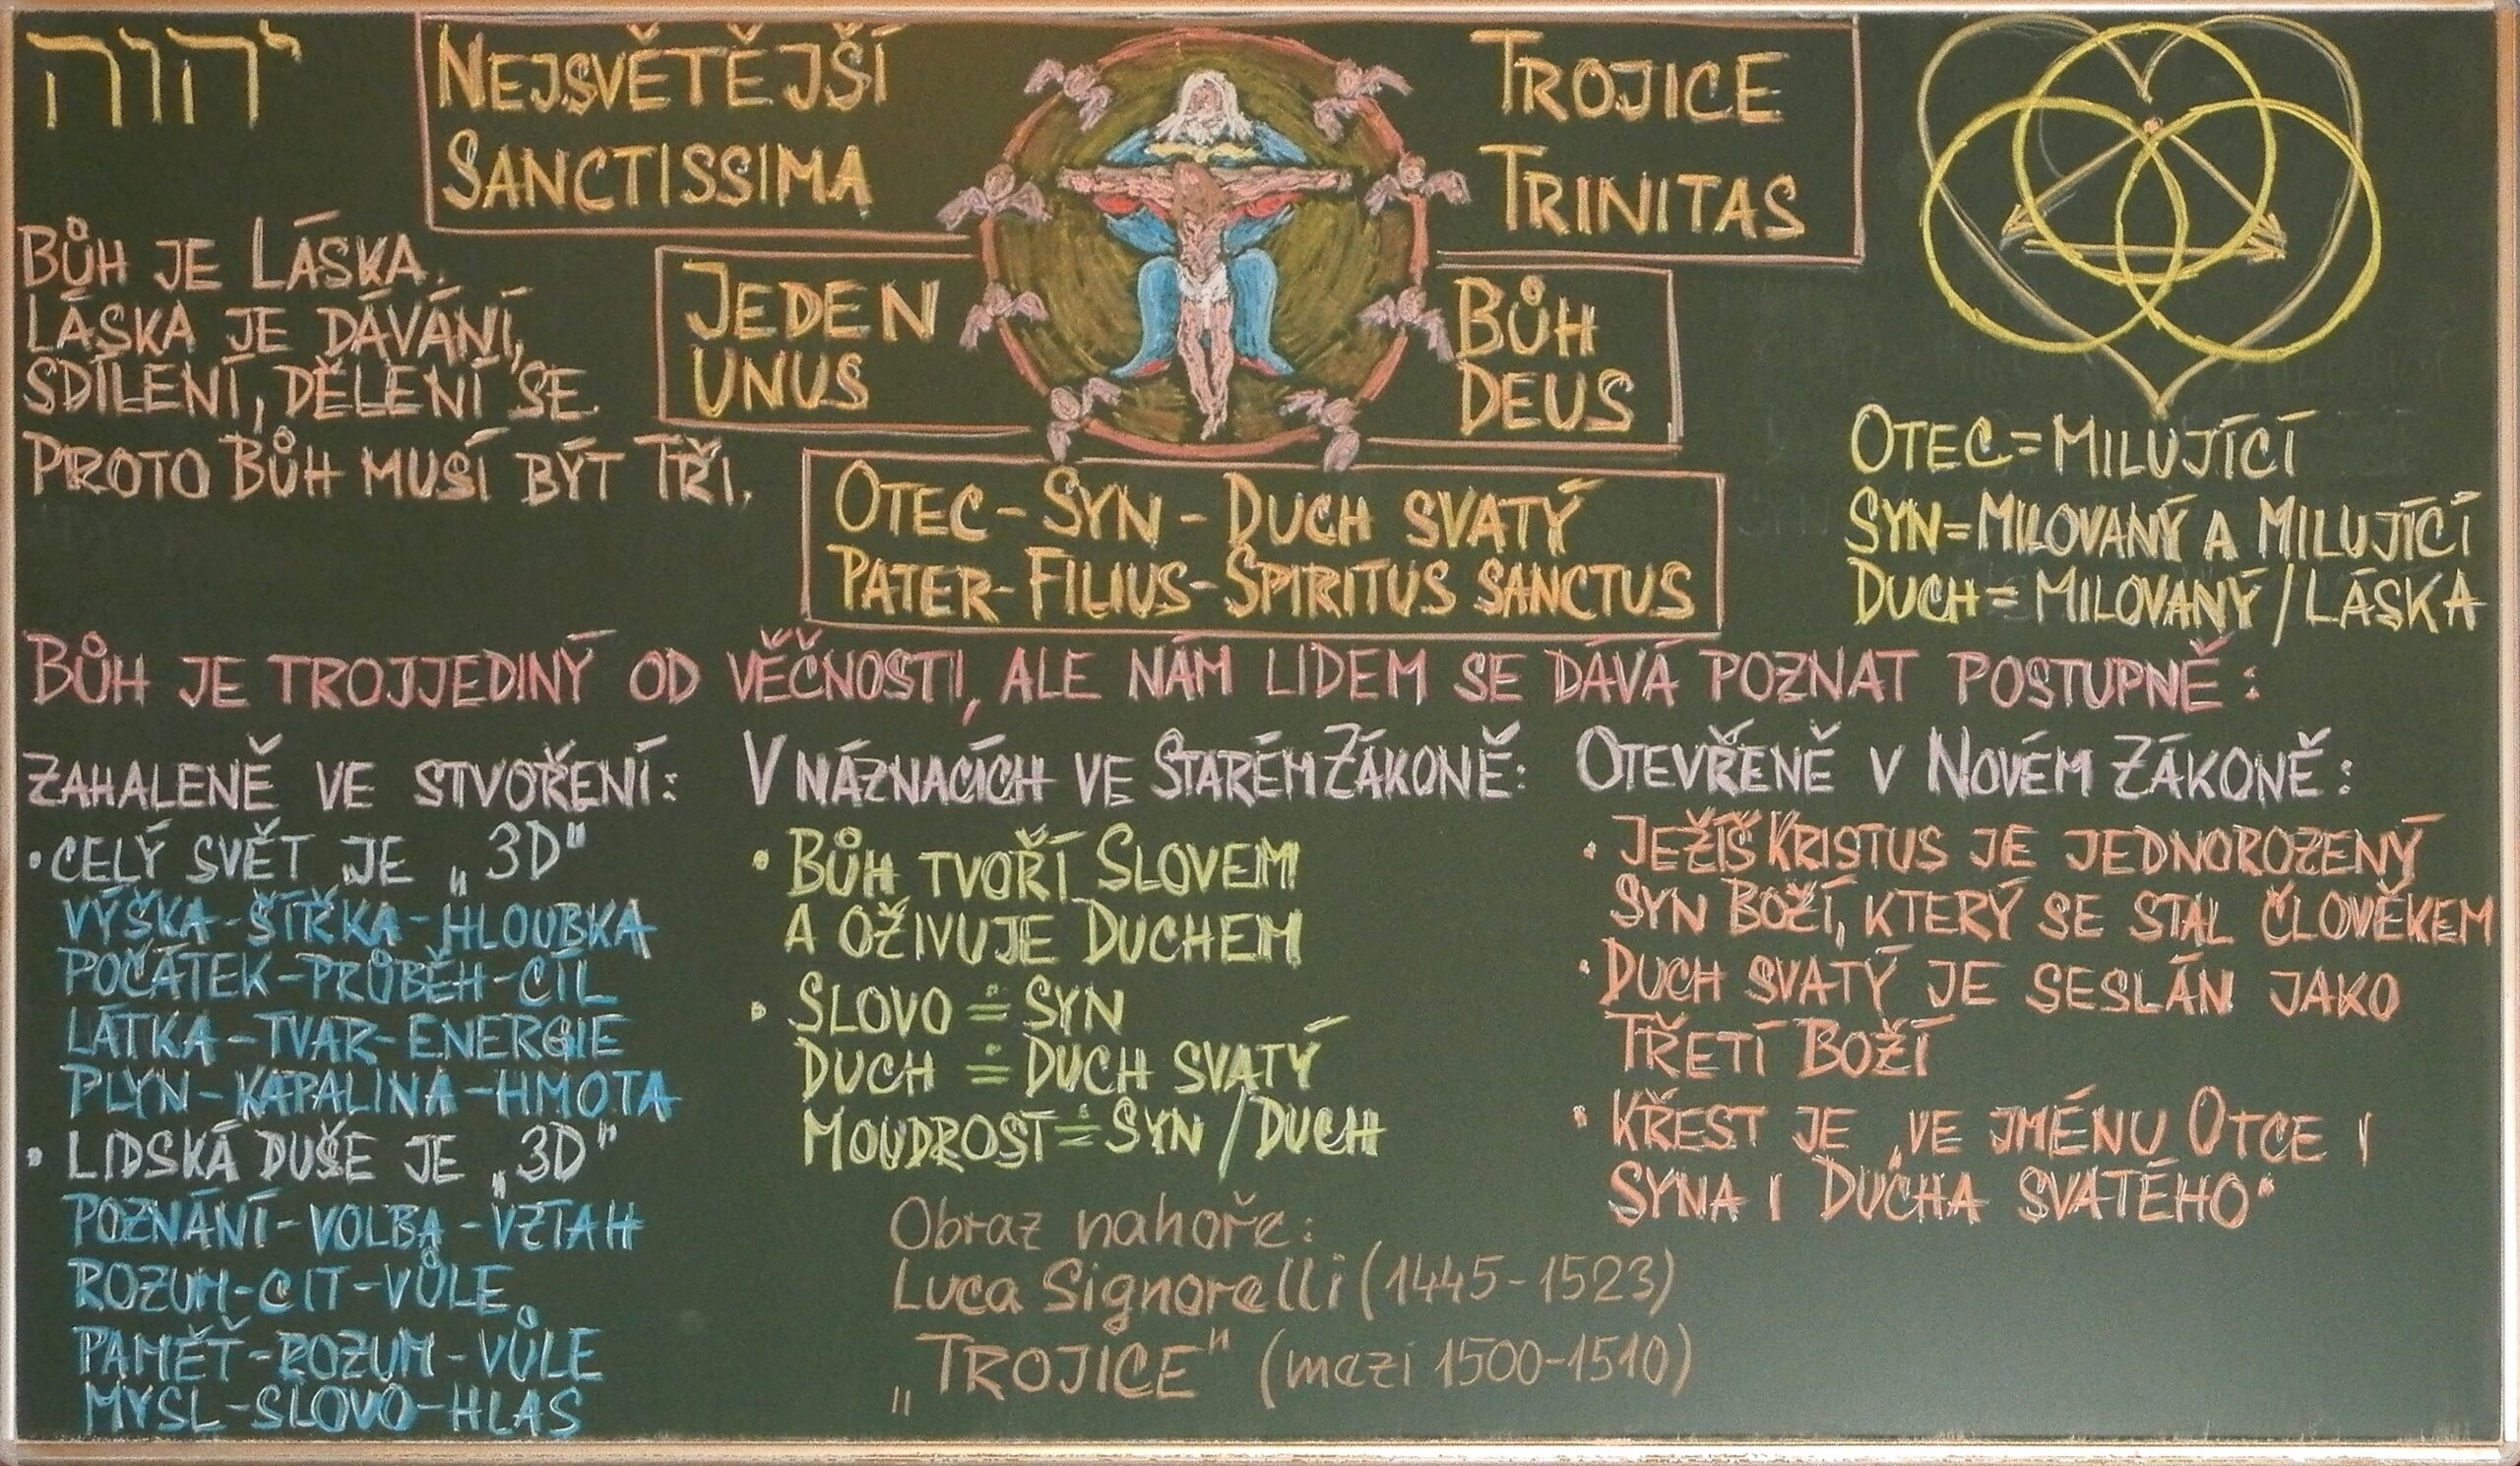 יהוה
NEJSVĚTĚJŠÍ TROJICE
SANCTISSIMA TRINITAS
JEDEN BŮH
UNUS DEUS
OTEC - SYN - DUCH SVATÝ
PATER - FILIUS - SPIRITUS SANCTUS
BŮH JE LÁSKA.
LÁSKA JE DÁVÁNÍ,
SDÍLENÍ, DĚLENÍ SE.
PROTO BŮH MUSÍ BÝT TŘI.
OTEC = MILUJÍCÍ
SYN = MILOVANÝ A MILUJÍCÍ
DUCH = MILOVANÝ / LÁSKA
BŮH JE TROJJEDINÝ OD VĚČNOSTI, ALE NÁM LIDEM SE DÁVÁ POZNAT POSTUPNĚ:
ZAHALENĚ VE STVOŘENÍ:
• CELÝ SVĚT JE „3D"
VÝŠKA - ŠÍŘKA - HLOUBKA
POČÁTEK - PRŮBĚH - CÍL
LÁTKA - TVAR - ENERGIE
PLYN - KAPALINA - HMOTA
• LIDSKÁ DUŠE JE „3D"
POZNÁNÍ - VOLBA - VZTAH
ROZUM - CIT - VŮLE
PAMĚŤ - ROZUM - VŮLE
MYSL - SLOVO - HLAS
V NÁZNACÍCH VE STARÉM ZÁKONĚ:
• BŮH TVOŘÍ SLOVEM
A OŽIVUJE DUCHEM
• SLOVO ≐ SYN
DUCH ≐ DUCH SVATÝ
MOUDROST ≐ SYN / DUCH
Obraz nahoře:
Luca Signorelli (1445-1523)
„TROJICE" (mezi 1500-1510)
OTEVŘENĚ V NOVÉM ZÁKONĚ:
• JEŽÍŠ KRISTUS JE JEDNOROZENÝ
SYN BOŽÍ, KTERÝ SE STAL ČLOVĚKEM
• DUCH SVATÝ JE SESLÁN JAKO
TŘETÍ BOŽÍ
• KŘEST JE „VE JMÉNU OTCE I
SYNA I DUCHA SVATÉHO"